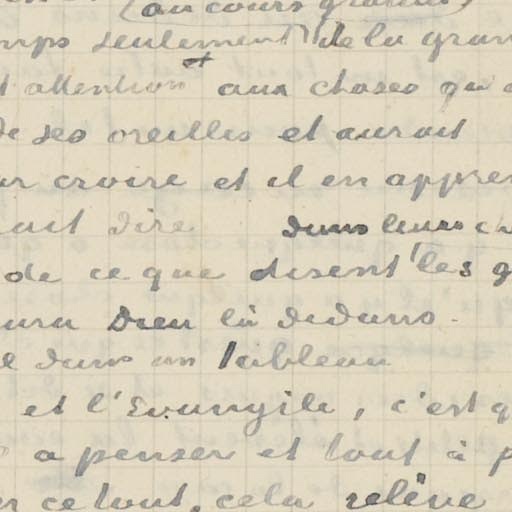 (au cours gradué)
seulement de la gran
attention et aux choses qu
de ses oreilles et aurait
croire et il en appre
ait dire dans leurs ch
de ce que disent les g
aura Dieu là dedans.
dans un tableau
et l'Evangile, c'est q
a penser et tout à p
ce tout, cela relève